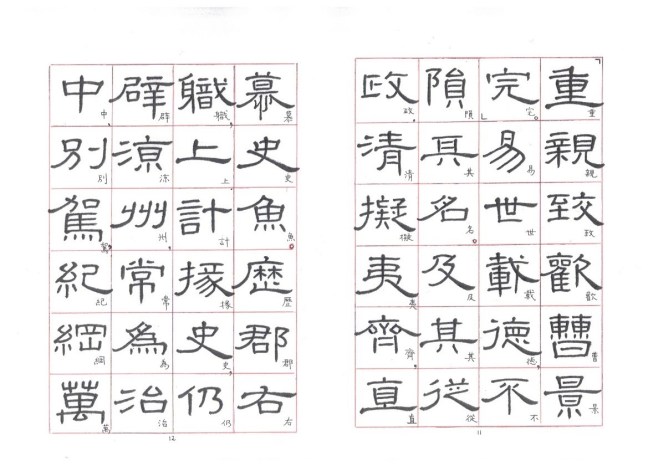 重親致歡曹景
重親致歡曹景
完易世載德不
完。易世載德,不
隕其名及其從
隕其名。及其從
政清擬夷齊直
政,清擬夷齊,直
11
慕史魚歷郡右
慕史魚。歷郡右
職上計掾史仍
職,上計掾史,仍
辟涼州常為治
辟涼州,常為治
中別駕紀綱萬
中,別駕,紀綱萬
12